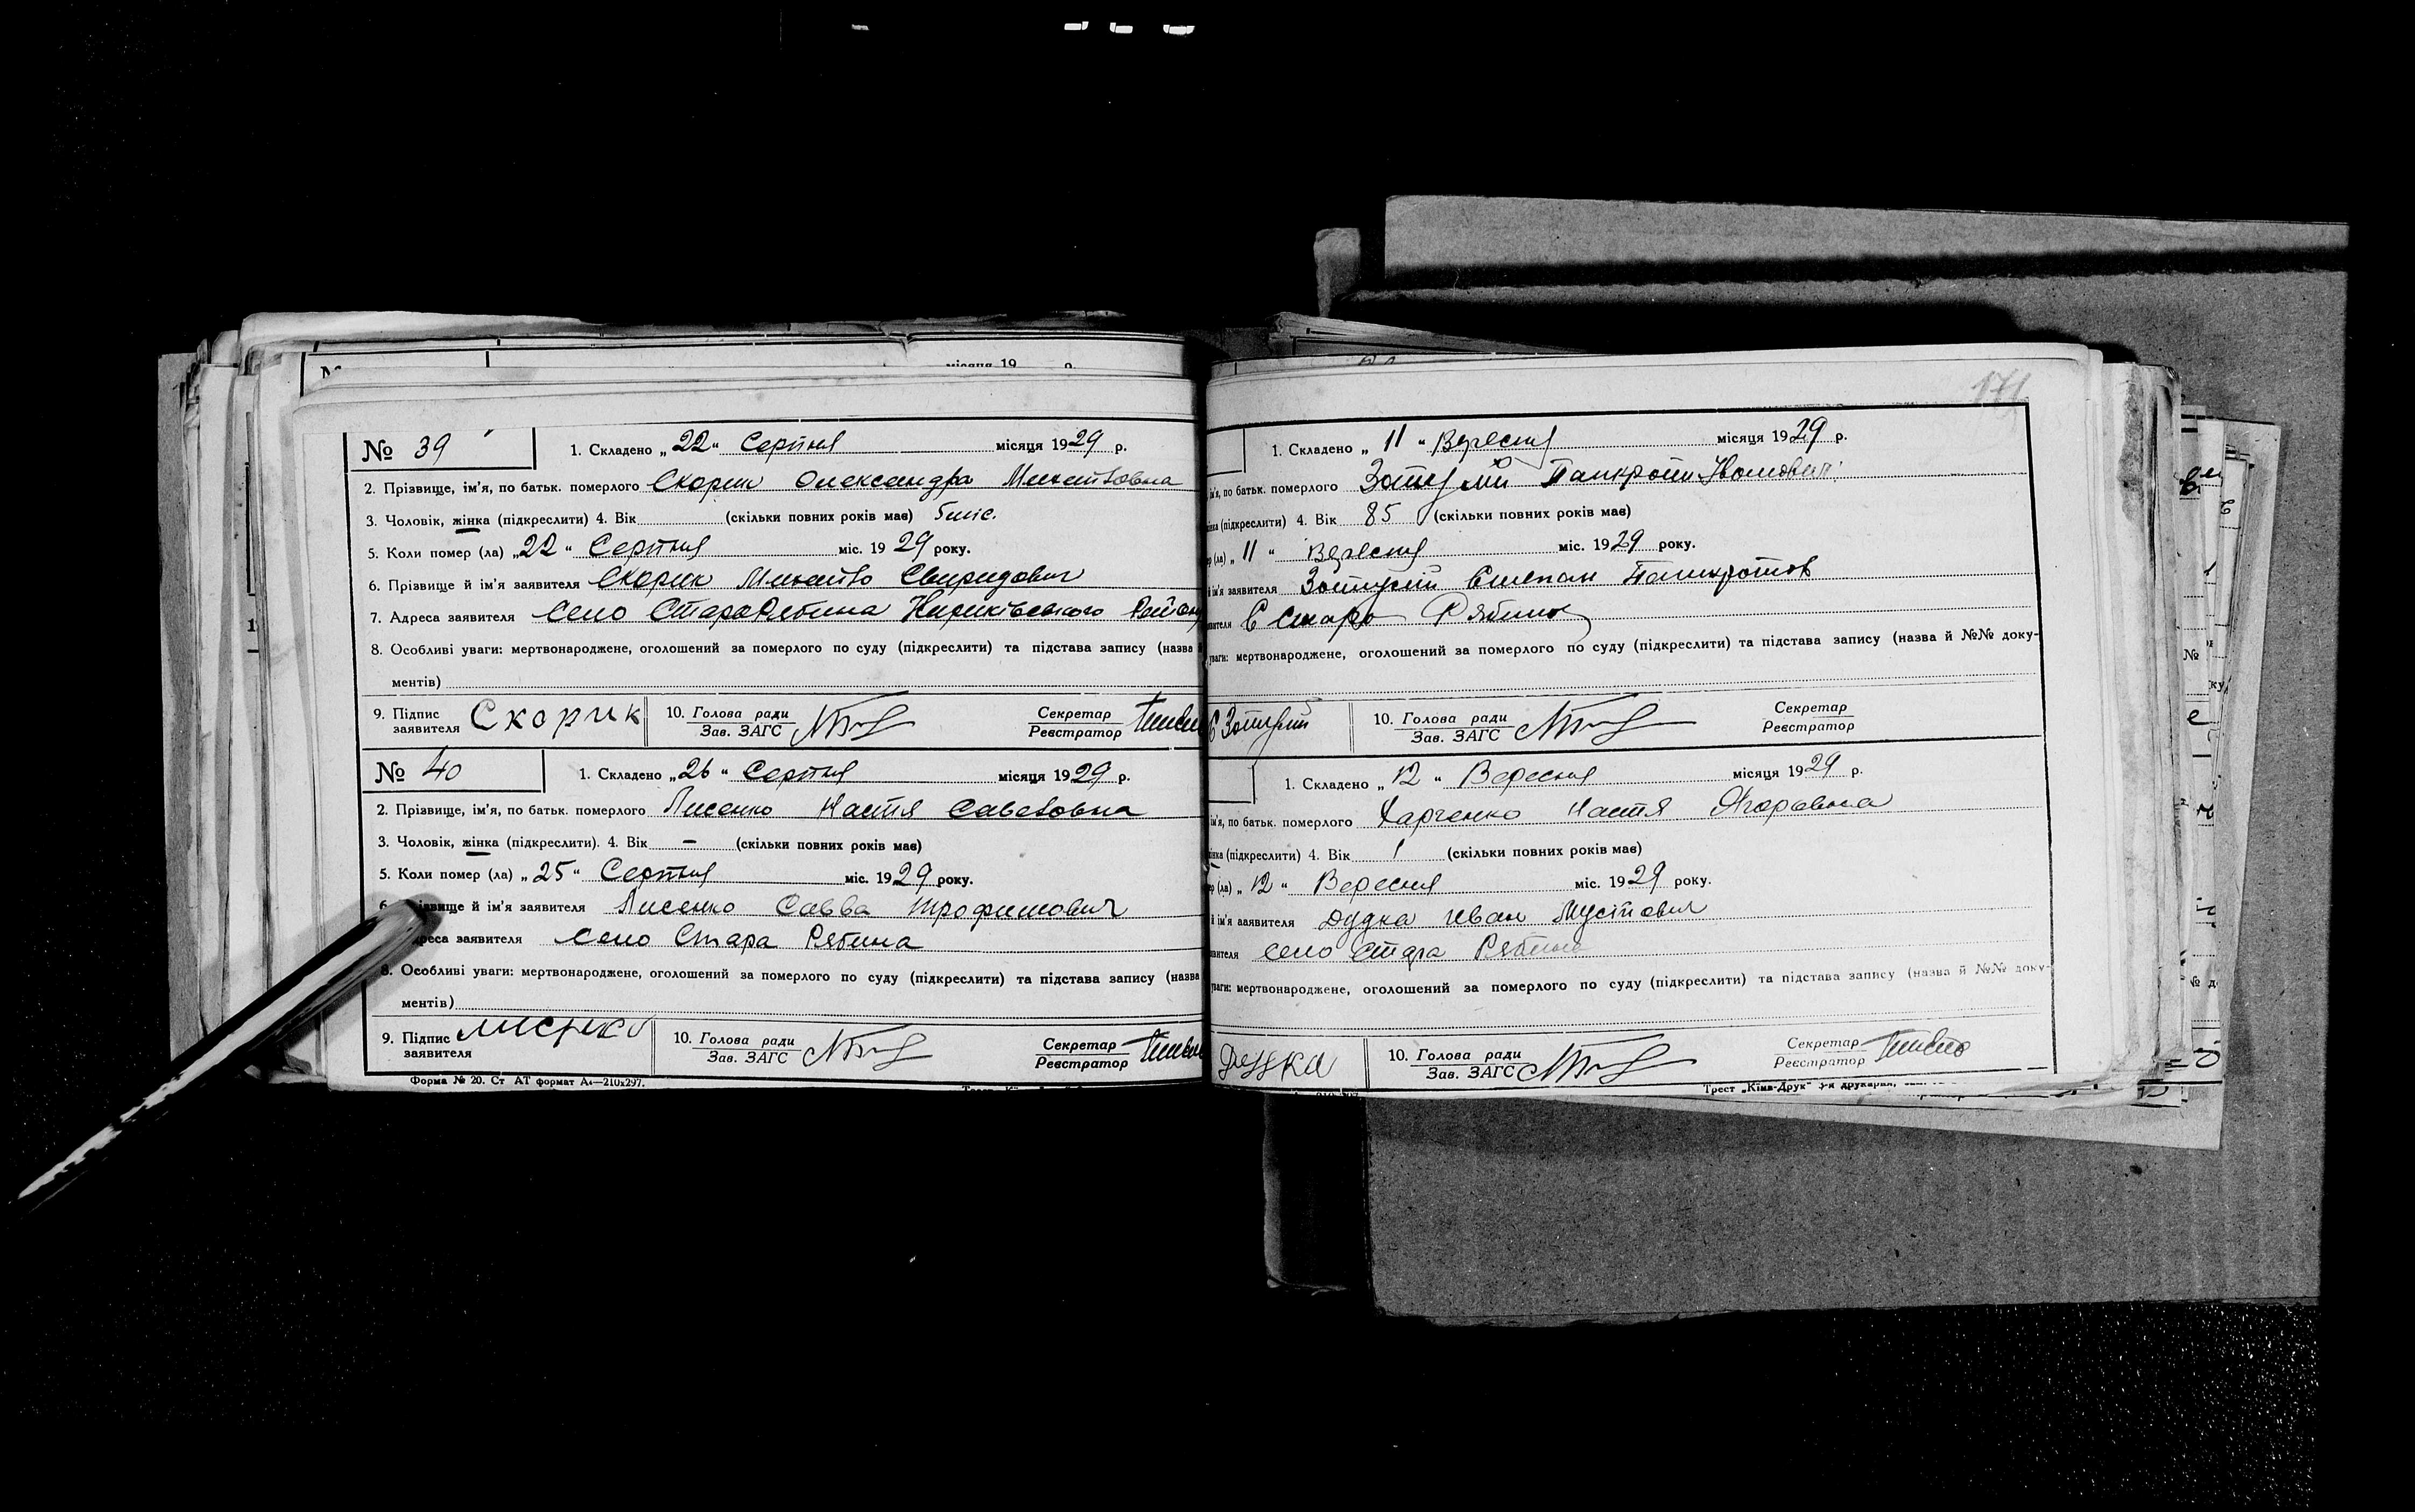 місяця 19 р.
№ 39
1. Складено „22" Серпня місяця 1929 р.
2. Прізвище, ім'я, по батьк. померлого Скорик Олександра
3. Чоловік, жінка (підкреслити) 4. Вік (скільки повних років має) 5 міс.
5. Коли помер (ла) „22" Серпня міс. 1929 року.
6. Прізвище й ім'я заявителя Скорик Свиридович
7. Адреса заявителя Село Стара Рябина
8. Особливі уваги: мертвонароджене, оголошений за померлого по суду (підкреслити) та підстава запису (назва й
ментів)
9. Підпис заявителя Скорик
10. Голова ради
Зав. ЗАГС
Секретар
Реєстратор
№ 40
1. Складено „26" Серпня місяця 1929 р.
2. Прізвище, ім'я, по батьк. померлого Лисенко Настя Саветовна
3. Чоловік, жінка (підкреслити). 4. Вік – (скільки повних років має)
5. Коли помер (ла) „25" Серпня міс. 1929 року.
6. Прізвище й ім'я заявителя Лисенко Савва Трофимович
реса заявителя село Стара Рябина
8. Особливі уваги: мертвонароджене, оголошений за померлого по суду (підкреслити) та підстава запису (назва
ментів)
9. Підпис заявителя Лисенко
10. Голова ради
Зав. ЗАГС
Секретар
Реєстратор
Форма № 20. Ст АТ формат А4—210х297.
171
1. Складено „11" Вересня місяця 1929 р.
ім'я, по батьк. померлого
(підкреслити) 4. Вік 85 (скільки повних років має)
(ла) „11" Вересня міс. 1929 року.
й ім'я заявителя Степан
С Стара Рябина
уваги: мертвонароджене, оголошений за померлого по суду (підкреслити) та підстава запису (назва й №№ доку-
10. Голова ради
Зав. ЗАГС
Секретар
Реєстратор
1. Складено „12" Вересня місяця 1929 р.
ім'я, по батьк. померлого Харченко Настя
(підкреслити) 4. Вік 1 (скільки повних років має)
(ла) „12" Вересня міс. 1929 року.
й ім'я заявителя Дудка Иван
село Стара Рябина
уваги: мертвонароджене, оголошений за померлого по суду (підкреслити) та підстава запису (назва й №№ доку-
Дудка
10. Голова ради
Зав. ЗАГС
Секретар
Реєстратор
Трест „Київ-Друк" 3-я друкарня,